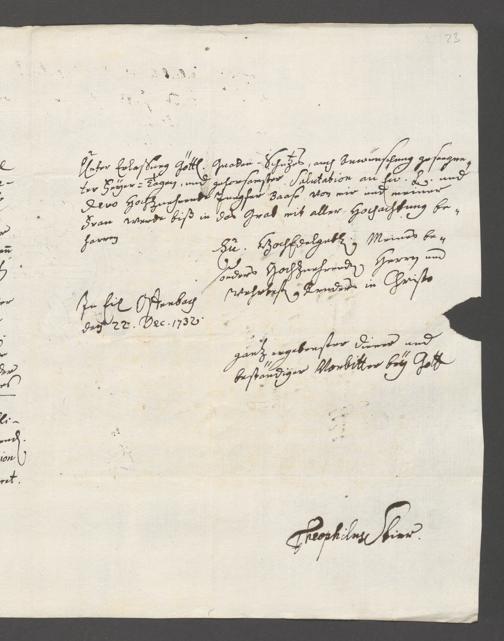 23
Unter Erlassung Göttl. Gnaden-Schutzes, auch Anwünschung gesegne-
ter Feyer-Tagen, und gehorsamster Salutation an Ew. L. und
Dero Hochzuehrende Jungfer Baase von mir und meiner
Frau werde biß in das Grab mit aller Hochachtung be-
harren
Eu. HochEdelgeb. Meines be-
sonders Hochzuehrenden Herrn und
Wehrtesten Freundes in Christo
In Eil Offenbach
den 22. Dec. 1732.
gantz ergebenster Diener und
beständiger Vorbitter bey Gott
Theophilus